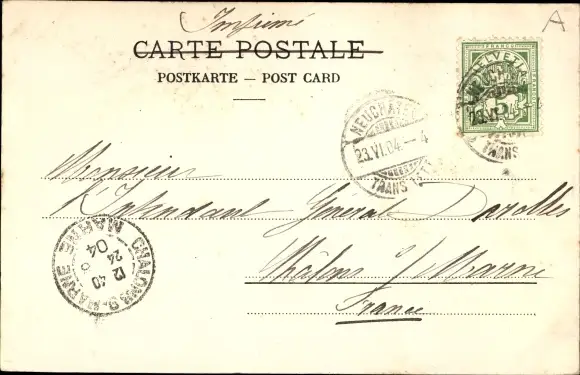 Imprimé
A
CARTE POSTALE
POSTKARTE — POST CARD
HELVETIA
NEUCHATEL
23.VI.04 — 4
TRANS
23.VI.04
TRANS
Monsieur
L'Intendant Général
Châlons s/ Marne
France
CHALONS-S-MARNE
MARNE
12 40
24 6
04